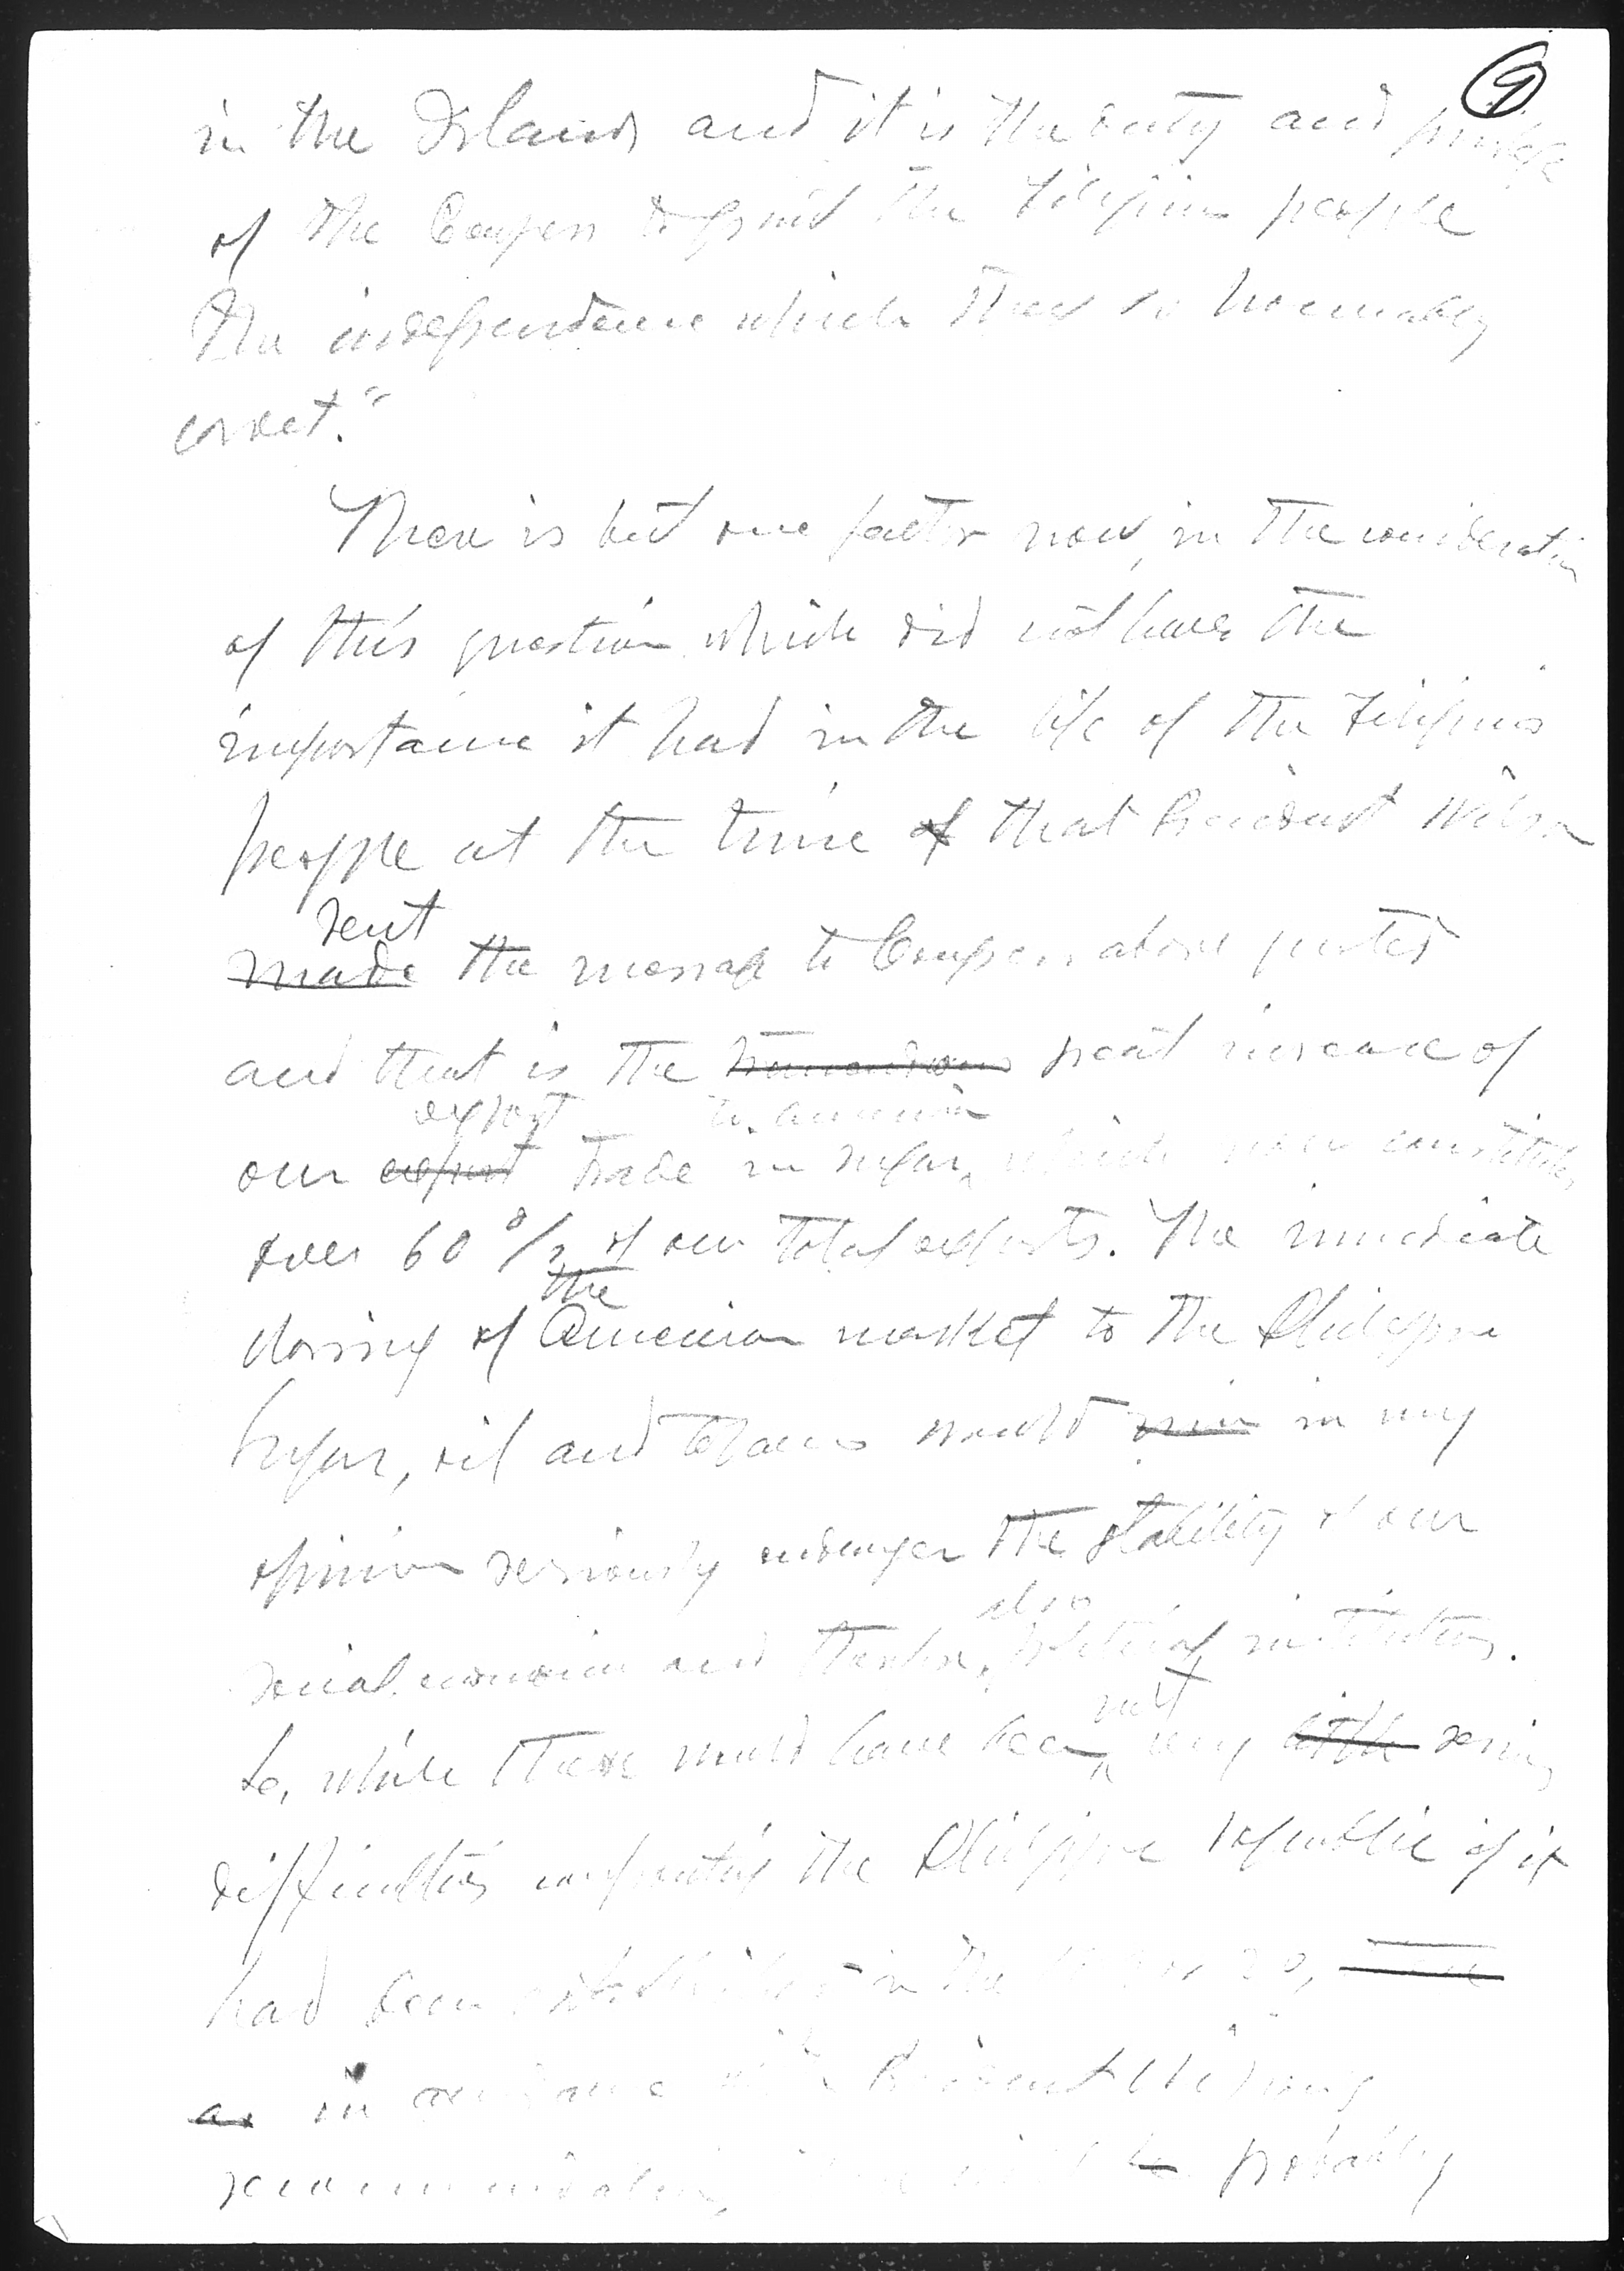 9
in the Islands and it is the duty and privilege
of the Congress to grant the Filipino people
the independence which they so honorably
covet."
There is but one factor now, in the consideration
of this question which did not have the
importance it had in the life of the Filipino
people at the time of that President Wilson
sent
made the message to Congress above quoted
and that is the tremendous great increase of
export to America
our export trade in sugar, which now constitutes
over 60 % of our total exports. The immediate
the
closing of American market to the Philippine
sugar, oil and tobacco would in my
opinion seriously endanger the stability of our
also
social economic and therefore, political institutions.
not
So, while there would have been very little serious
difficulties confronting the Philippine republic if it
had been established in the
as in accordance with President Wilson's
recommendation, be probably